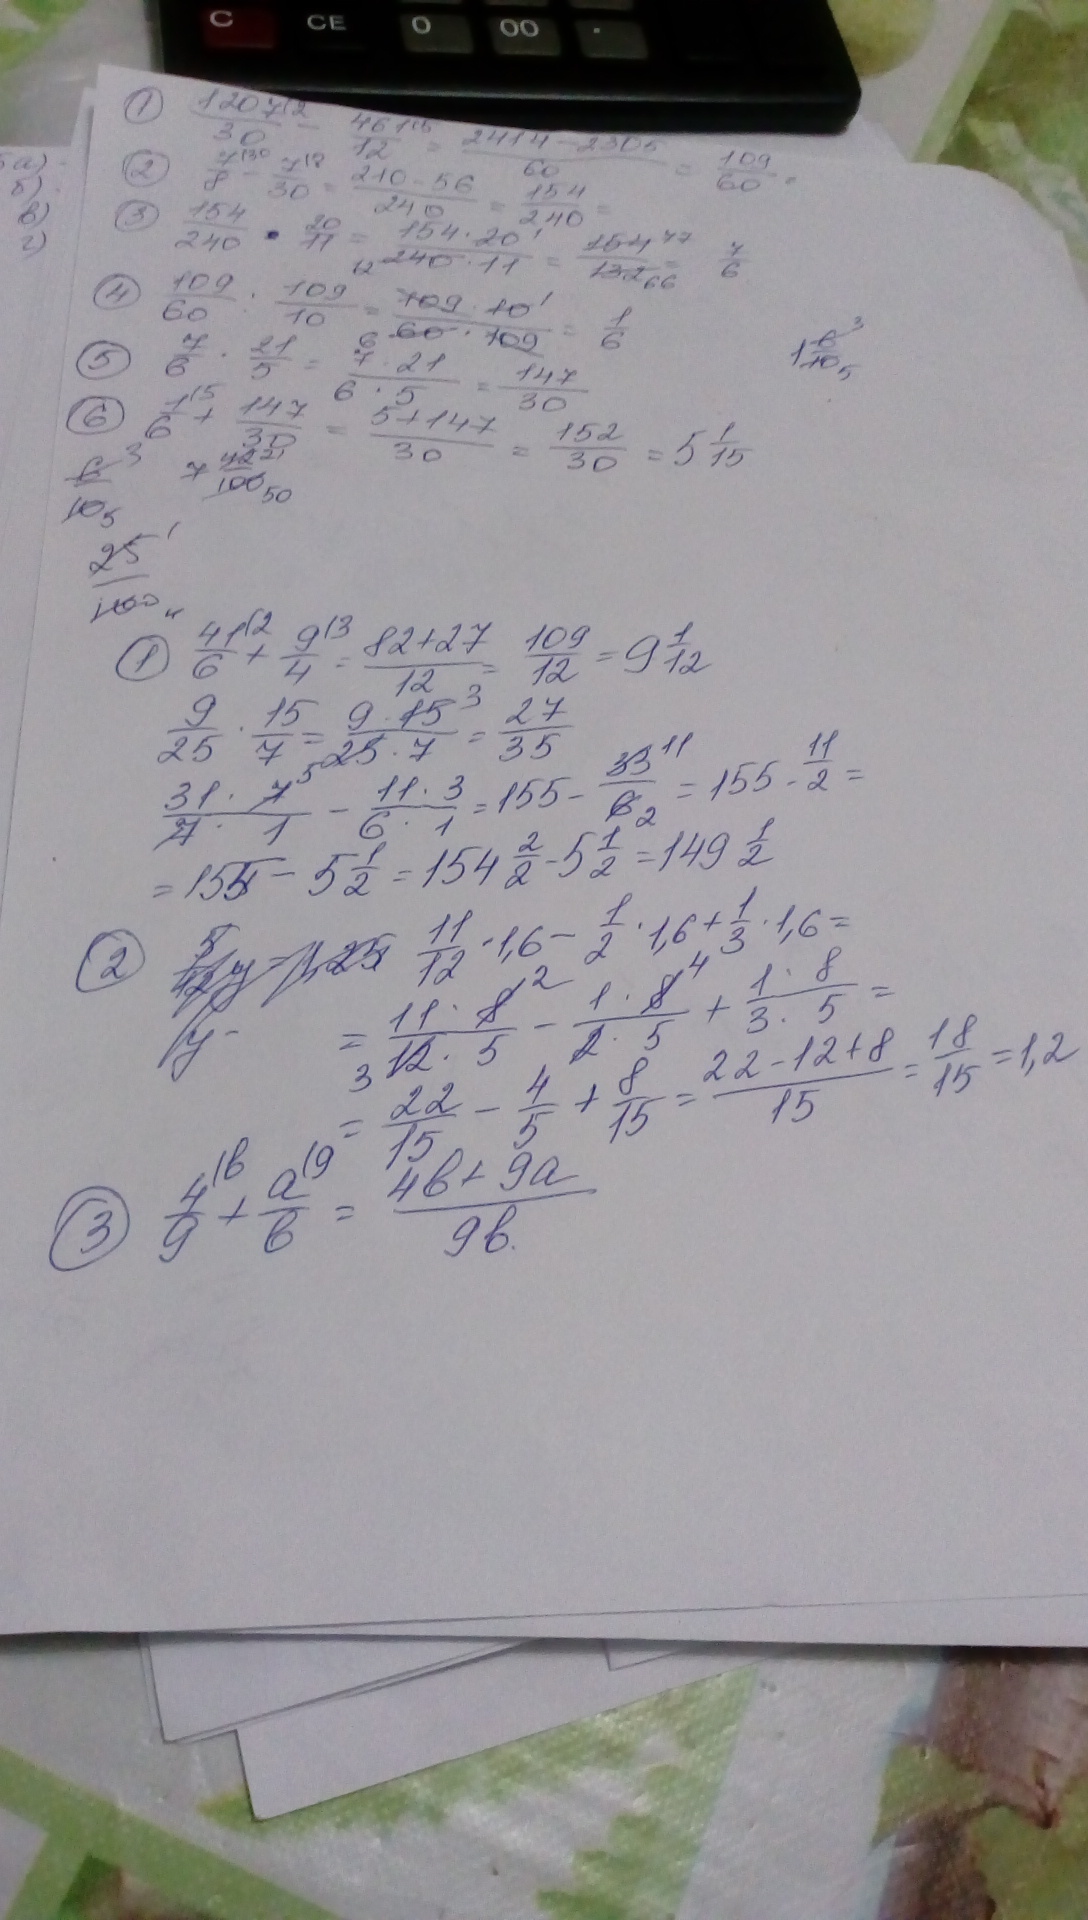 C CE 0 00 .
а)
б)
в)
г)
① 1207(2/30 - 461(5/12 = 2414-2305/60 = 109/60 =
② 7(30/8 - 7(8/30 = 210-56/240 = 154/240 =
③ 154/240 · 20/11 = 154·20 1/12 240·11 = 154 77/132 66 = 7/6
④ 109/60 : 109/10 = 109·10 1/6 60·109 = 1/6
1 6 3/10 5
⑤ 7/6 · 21/5 = 7·21/6·5 = 147/30
⑥ 1(5/6 + 147/30 = 5+147/30 = 152/30 = 5 1/15
6 3/10 5 7 42 21/100 50
25 1/100 4
① 41(2/6 + 9(3/4 = 82+27/12 = 109/12 = 9 1/12
9/25 · 15/7 = 9·15 3/5 25·7 = 27/35
31·7 5/7·1 - 11·3/6·1 = 155 - 33 11/6 2 = 155 - 11/2 =
= 155 - 5 1/2 = 154 2/2 - 5 1/2 = 149 1/2
② 5/12 y = 1,25 11/12 · 1,6 - 1/2 · 1,6 + 1/3 · 1,6 =
y = 11·8 2/3 12·5 - 1·8 4/2·5 + 1·8/3·5 =
= 22/15 - 4/5 + 8/15 = 22-12+8/15 = 18/15 = 1,2
③ 4(в/9 + а(9/в = 4в+9а/9в.